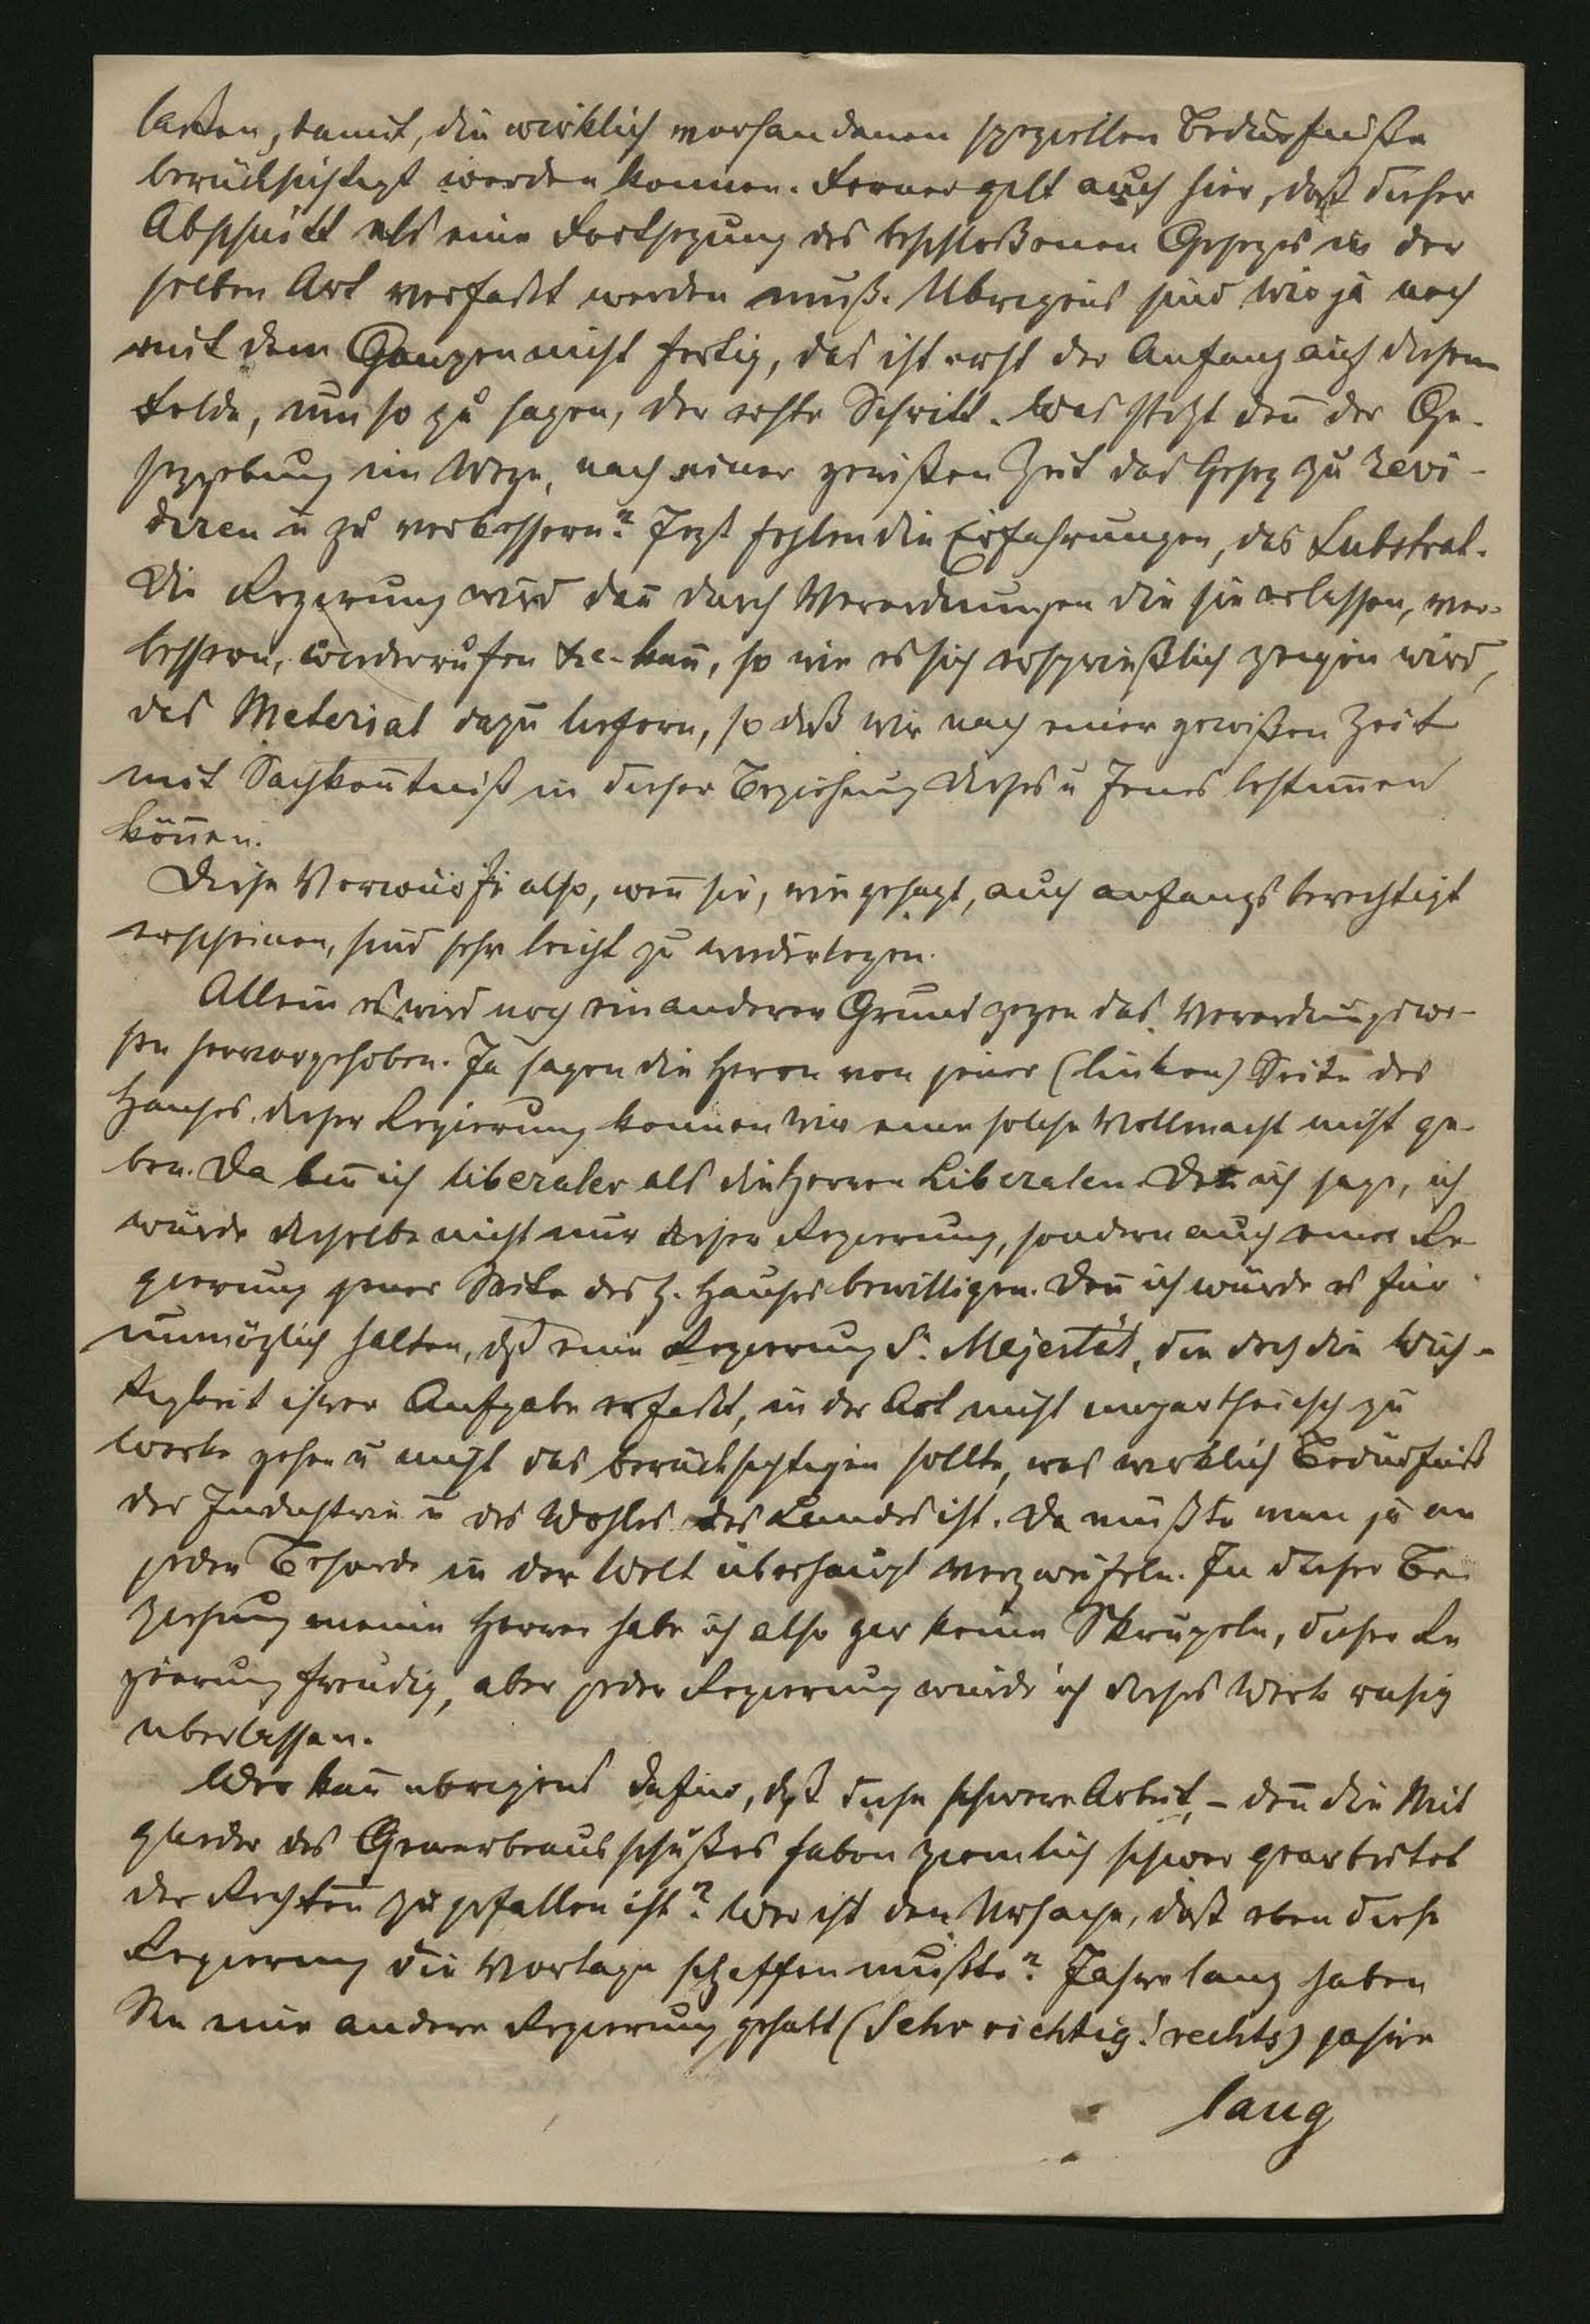 laßen, damit, die wirklich vorhandenen speziellen Bedürfniße
berücksichtigt werden können. Ferner gilt auch hier, daß dieser
Abschnitt als eine Fortsezung des beschloßenen Gesezes in der
selben Art verfaßt werden muß. Übrigens sind wir ja noch
mit dem Ganzen nicht fertig, das ist erst der Anfang auf diesem
Felde, um so zu sagen, der erste Schritt. Was steht den̄ der Ge-
sezgebung im Wege, nach einer gewißen Zeit das Gesez zu revi-
diren u zu verbessern? Jezt fehlen die Erfahrungen, das Substrat.
Die Regierung wird dan̄ durch Verordnungen die sie erlassen, ver-
bessern, wiederrufen &c. kan̄, so wie es sich ersprießlich zeigen wird,
das Material dazu liefern, so daß wir nach einer gewißen Zeit
mit Sachken̄tniß in dieser Beziehung dieses u Jenes bestim̄en
kön̄en.
Diese Vorwürfe also, wen̄ sie, wie gesagt, auch anfangs berechtigt
erscheinen, sind sehr leicht zu wiederlegen.
Allein es wird noch ein anderer Grund gegen das Verordnungswe-
sen hervorgehoben. Ja sagen die Herrn von jener (linken) Seite des
Hauses, dieser Regierung können wir eine solche Vollmacht nicht ge-
ben. Da bin̄ ich liberaler als die Herren Liberalen. Den̄ ich sage, ich
würde dieselbe nicht nur dieser Regierung, sondern auch einer Re-
gierung jener Seite des h. Hauses bewilligen. Den̄ ich würde es für
unmöglich halten, daß eine Regierung Sr. Majestät, die doch die Wich-
tigkeit ihrer Aufgabe erfaßt, in der Art nicht unpartheiisch zu
Werke gehen u nicht das berücksichtigen sollte, was wirklich Bedürfniß
der Industrie u des Wohles des Landes ist. Da müßte man ja an
jeder Behörde in der Welt überhaupt verzweifeln. In dieser Be-
ziehung meine Herren habe ich also gar keine Skrupeln, dieser Re
gierung freudig, aber jeder Regierung würde ich dieses Werk ruhig
überlassen.
Wer kan̄ übrigens dafür, daß diese schwere Arbeit, – den̄ die Mit
glieder des Gewerbeausschußes haben ziemlich schwer gearbeitet
der Rechten zugefallen ist? Wer ist den̄ Ursache, daß eben diese
Regierung die Vorlage schaffen mußte? Jahre lang haben
Sie eine andere Regierung gehabt (Sehr richtig! rechts) jahre
lang